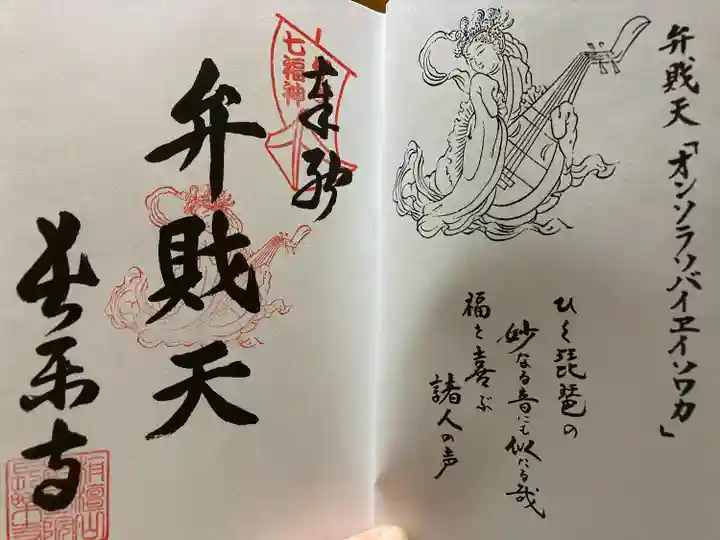 弁戝天「オンソラソバイヱイソワカ」
ひく琵琶の
妙なる音にも似たる哉
福を喜ぶ
諸人の声
奉拝
七福神
弁戝天
長楽寺